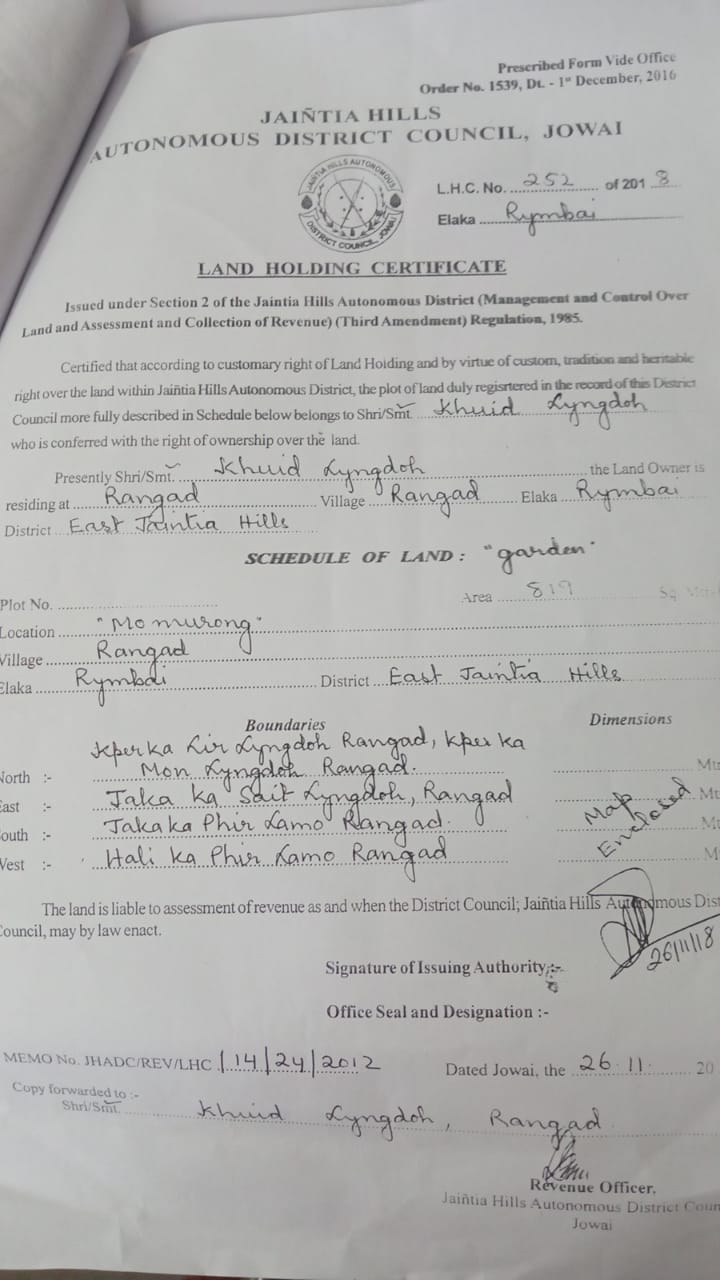 Prescribed Form Vide Office
Order No. 1539, Dt. - 1st December, 2016
JAIÑTIA HILLS
AUTONOMOUS DISTRICT COUNCIL, JOWAI
JAIÑTIA HILLS AUTONOMOUS
DISTRICT COUNCIL, JOWAI
L.H.C. No. 252 of 2018
Elaka Rymbai
LAND HOLDING CERTIFICATE
Issued under Section 2 of the Jaintia Hills Autonomous District (Management and Control Over
Land and Assessment and Collection of Revenue) (Third Amendment) Regulation, 1985.
Certified that according to customary right of Land Holding and by virtue of custom, tradition and heritable
right over the land within Jaiñtia Hills Autonomous District, the plot of land duly regisrtered in the record of this District
Council more fully described in Schedule below belongs to Shri/Smt. Khuid Lyngdoh
who is conferred with the right of ownership over the land.
Presently Shri/Smt. Khuid Lyngdoh the Land Owner is
residing at Rangad Village Rangad Elaka Rymbai
District East Jaintia Hills
SCHEDULE OF LAND : "garden"
Plot No. Area 819 Sq.
Location "Momurong"
Village Rangad
Elaka Rymbai District East Jaintia Hills
Boundaries Dimensions
Kper ka Lir Lyngdoh Rangad, Kper ka
North :- Mon Lyngdoh Rangad. Mt
East :- Jaka ka Sait Lyngdoh, Rangad Mt
South :- Jaka ka Phir Lamo Rangad. Mt
West :- Hali ka Phir Lamo Rangad M
Map
Enclosed
The land is liable to assessment of revenue as and when the District Council; Jaiñtia Hills Autonomous Dist
Council, may by law enact.
26/11/18
Signature of Issuing Authority :-
Office Seal and Designation :-
MEMO No. JHADC/REV/LHC/14/24/2012 Dated Jowai, the 26.11. 20
Copy forwarded to :-
Shri/Smt. Khuid Lyngdoh, Rangad
Revenue Officer,
Jaiñtia Hills Autonomous District Coun
Jowai